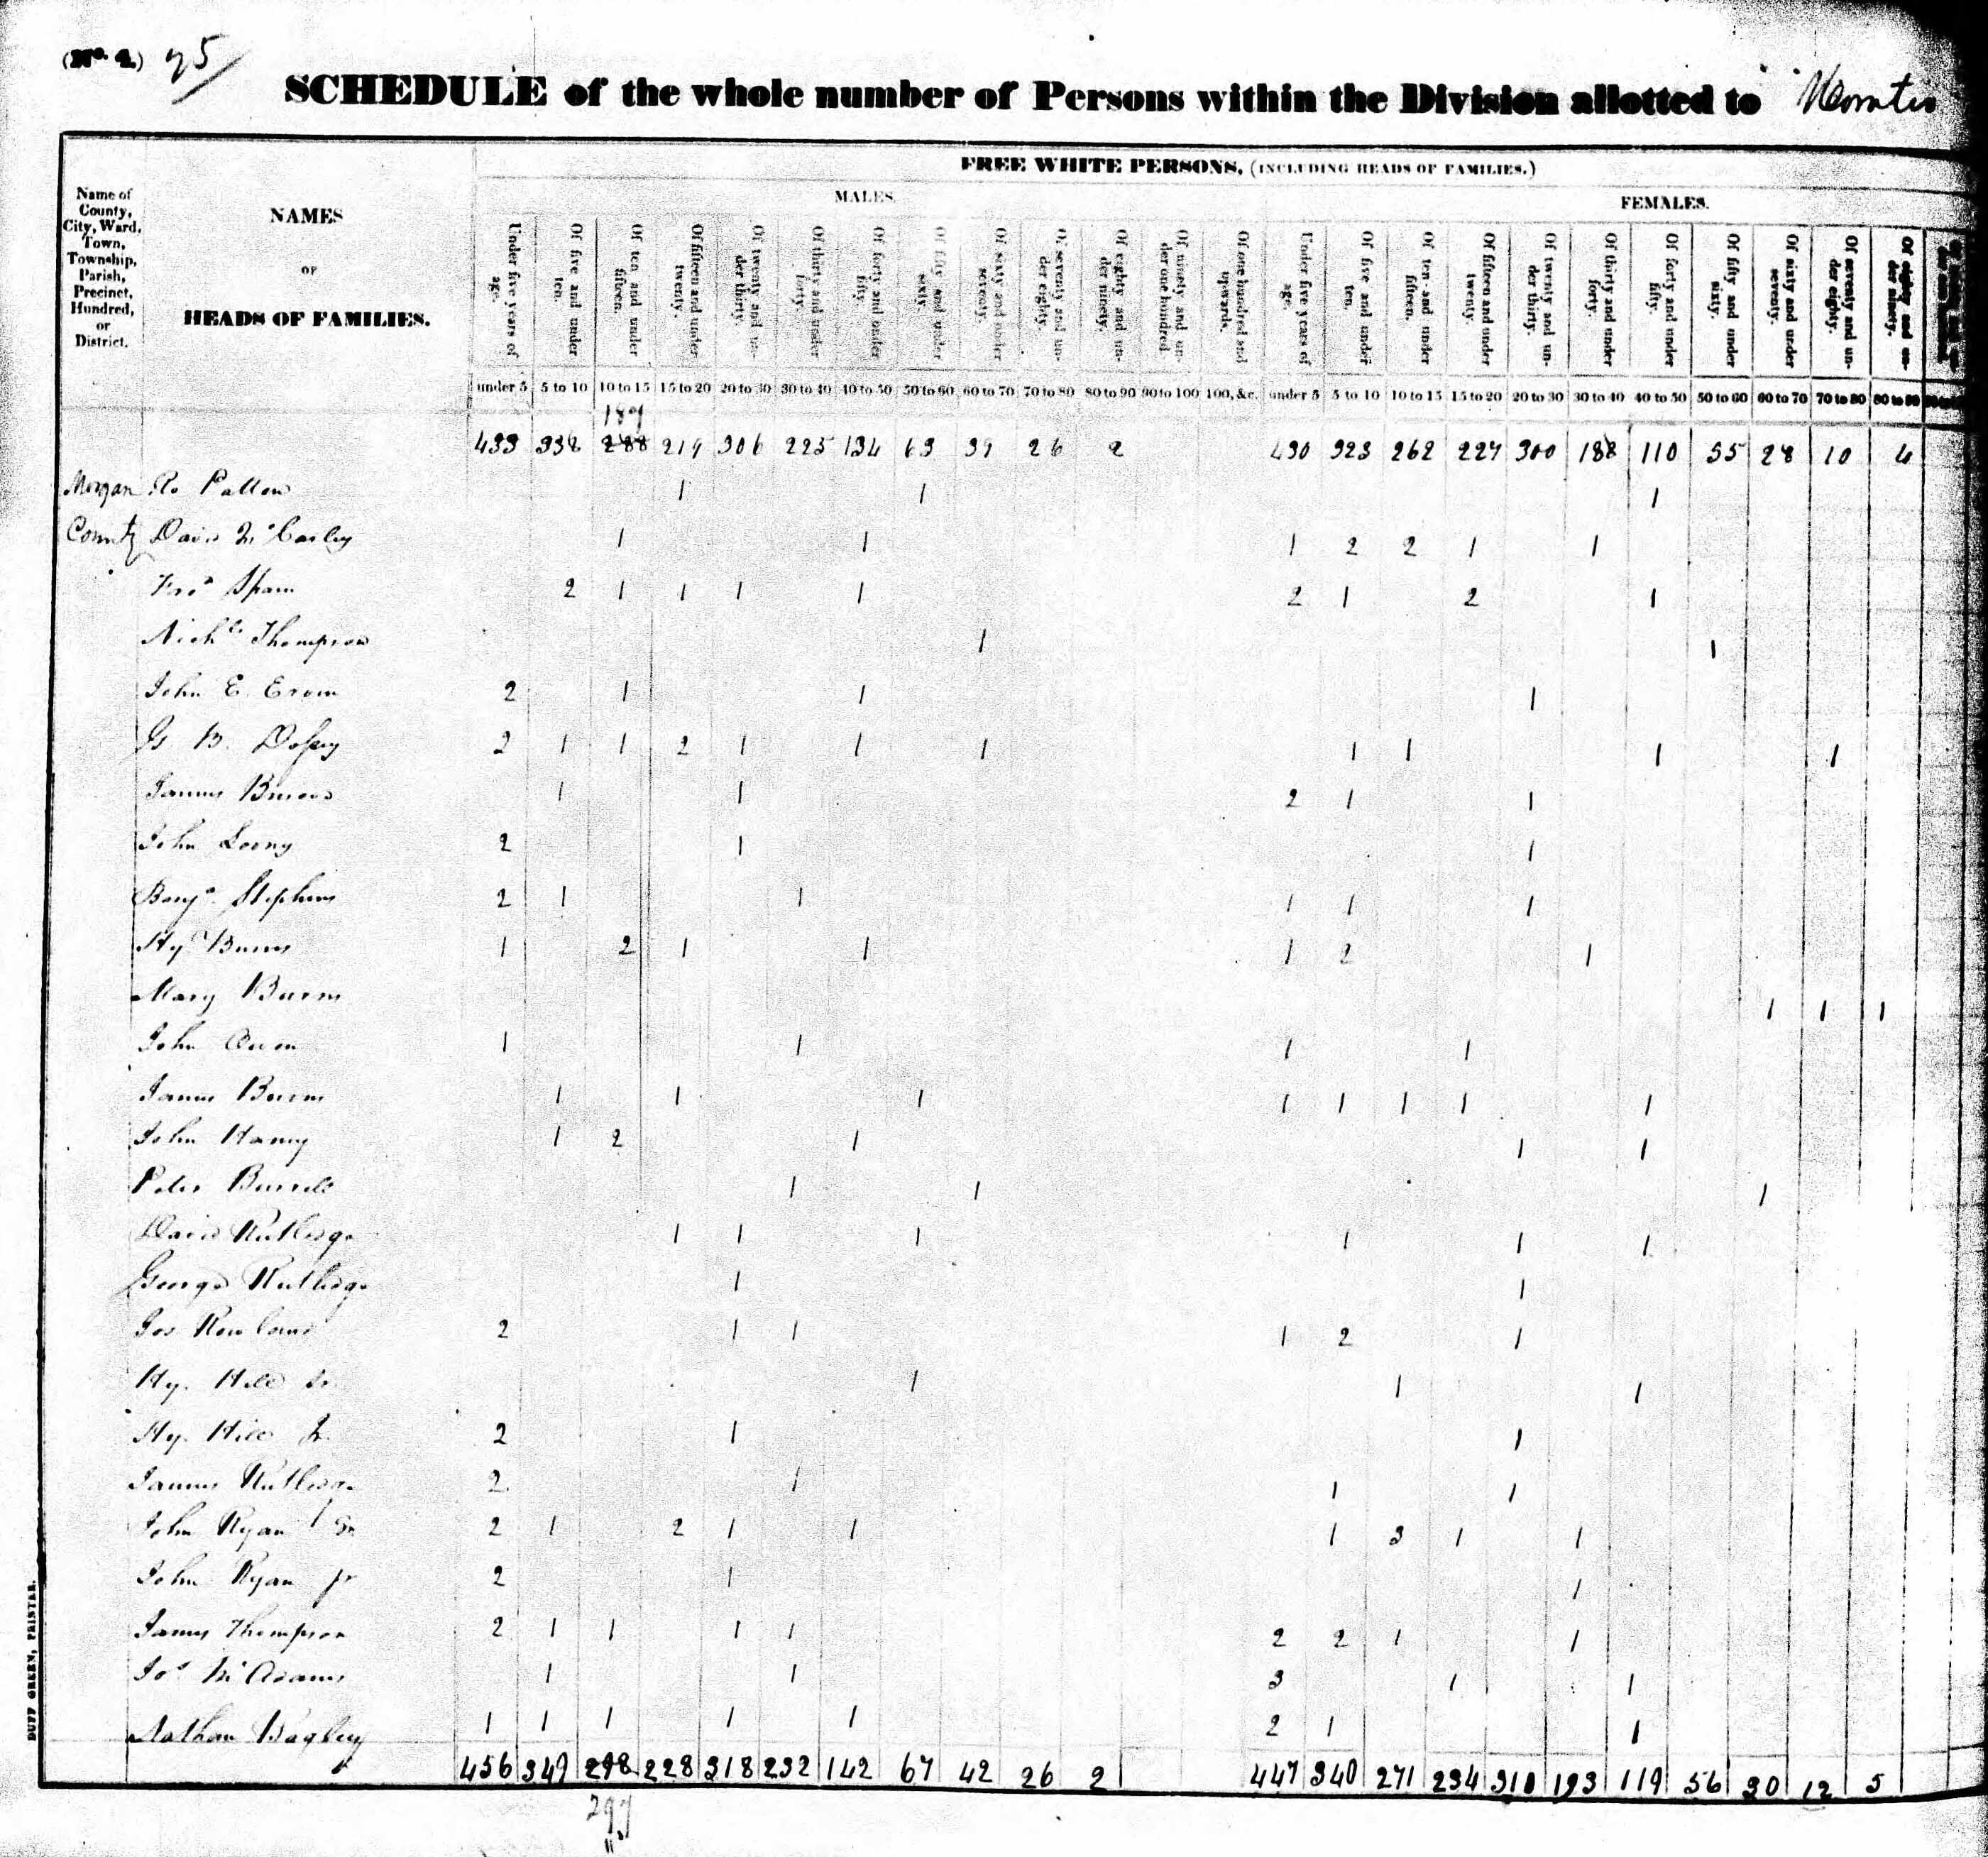 (No. 4.) 75
SCHEDULE of the whole number of Persons within the Division allotted to
FREE WHITE PERSONS, (INCLUDING HEADS OF FAMILIES.)
MALES. FEMALES.
Name of County, City, Ward, Town, Township, Parish, Precinct, Hundred, or District.
NAMES OF HEADS OF FAMILIES.
Under five years of age. Of five and under ten. Of ten and under fifteen. Of fifteen and under twenty. Of twenty and under thirty. Of thirty and under forty. Of forty and under fifty. Of fifty and under sixty. Of sixty and under seventy. Of seventy and under eighty. Of eighty and under ninety. Of ninety and under one hundred. Of one hundred and upwards. Under five years of age. Of five and under ten. Of ten and under fifteen. Of fifteen and under twenty. Of twenty and under thirty. Of thirty and under forty. Of forty and under fifty. Of fifty and under sixty. Of sixty and under seventy. Of seventy and under eighty. Of eighty and under ninety.
under 5 5 to 10 10 to 15 15 to 20 20 to 30 30 to 40 40 to 50 50 to 60 60 to 70 70 to 80 80 to 90 90 to 100 100, &c. under 5 5 to 10 10 to 15 15 to 20 20 to 30 30 to 40 40 to 50 50 to 60 60 to 70 70 to 80 80 to 90
433 338 288 219 306 225 134 63 39 26 2 430 323 262 227 300 188 110 55 28 10 4
Morgan Ro Patton 1 1 1
County David 1 1 1 2 2 1 1
Spain 2 1 1 1 1 2 1 2 1
Nichls Thompson 1 1
John E. 2 1 1 1
G. B. 2 1 1 2 1 1 1 1 1 1 1
James 1 1 2 1 1
John 2 1 1
Benja Stephens 2 1 1 1 1 1
Hy Burns 1 2 1 1 1 2 1
Mary Burns 1 1 1
John Owen 1 1 1 1
James Burns 1 1 1 1 1 1 1 1
John 1 2 1 1 1
Peter 1 1 1
David Rutledge 1 1 1 1 1 1
George Rutledge 1 1
Jos 2 1 1 1 2 1
Hy. Hill Sr. 1 1 1
Hy. Hill Jr. 2 1 1
James Rutledge 2 1 1 1
John Ryan Sr 2 1 2 1 1 1 3 1 1
John Ryan jr 2 1 1
James Thompson 2 1 1 1 1 2 2 1 1
Jos McAdams 1 1 3 1 1
Nathan Bagley 1 1 1 1 1 2 1 1
456 349 298 228 318 232 142 67 42 26 2 447 340 271 234 310 193 119 56 30 12 5
297
DUFF GREEN, PRINTER.